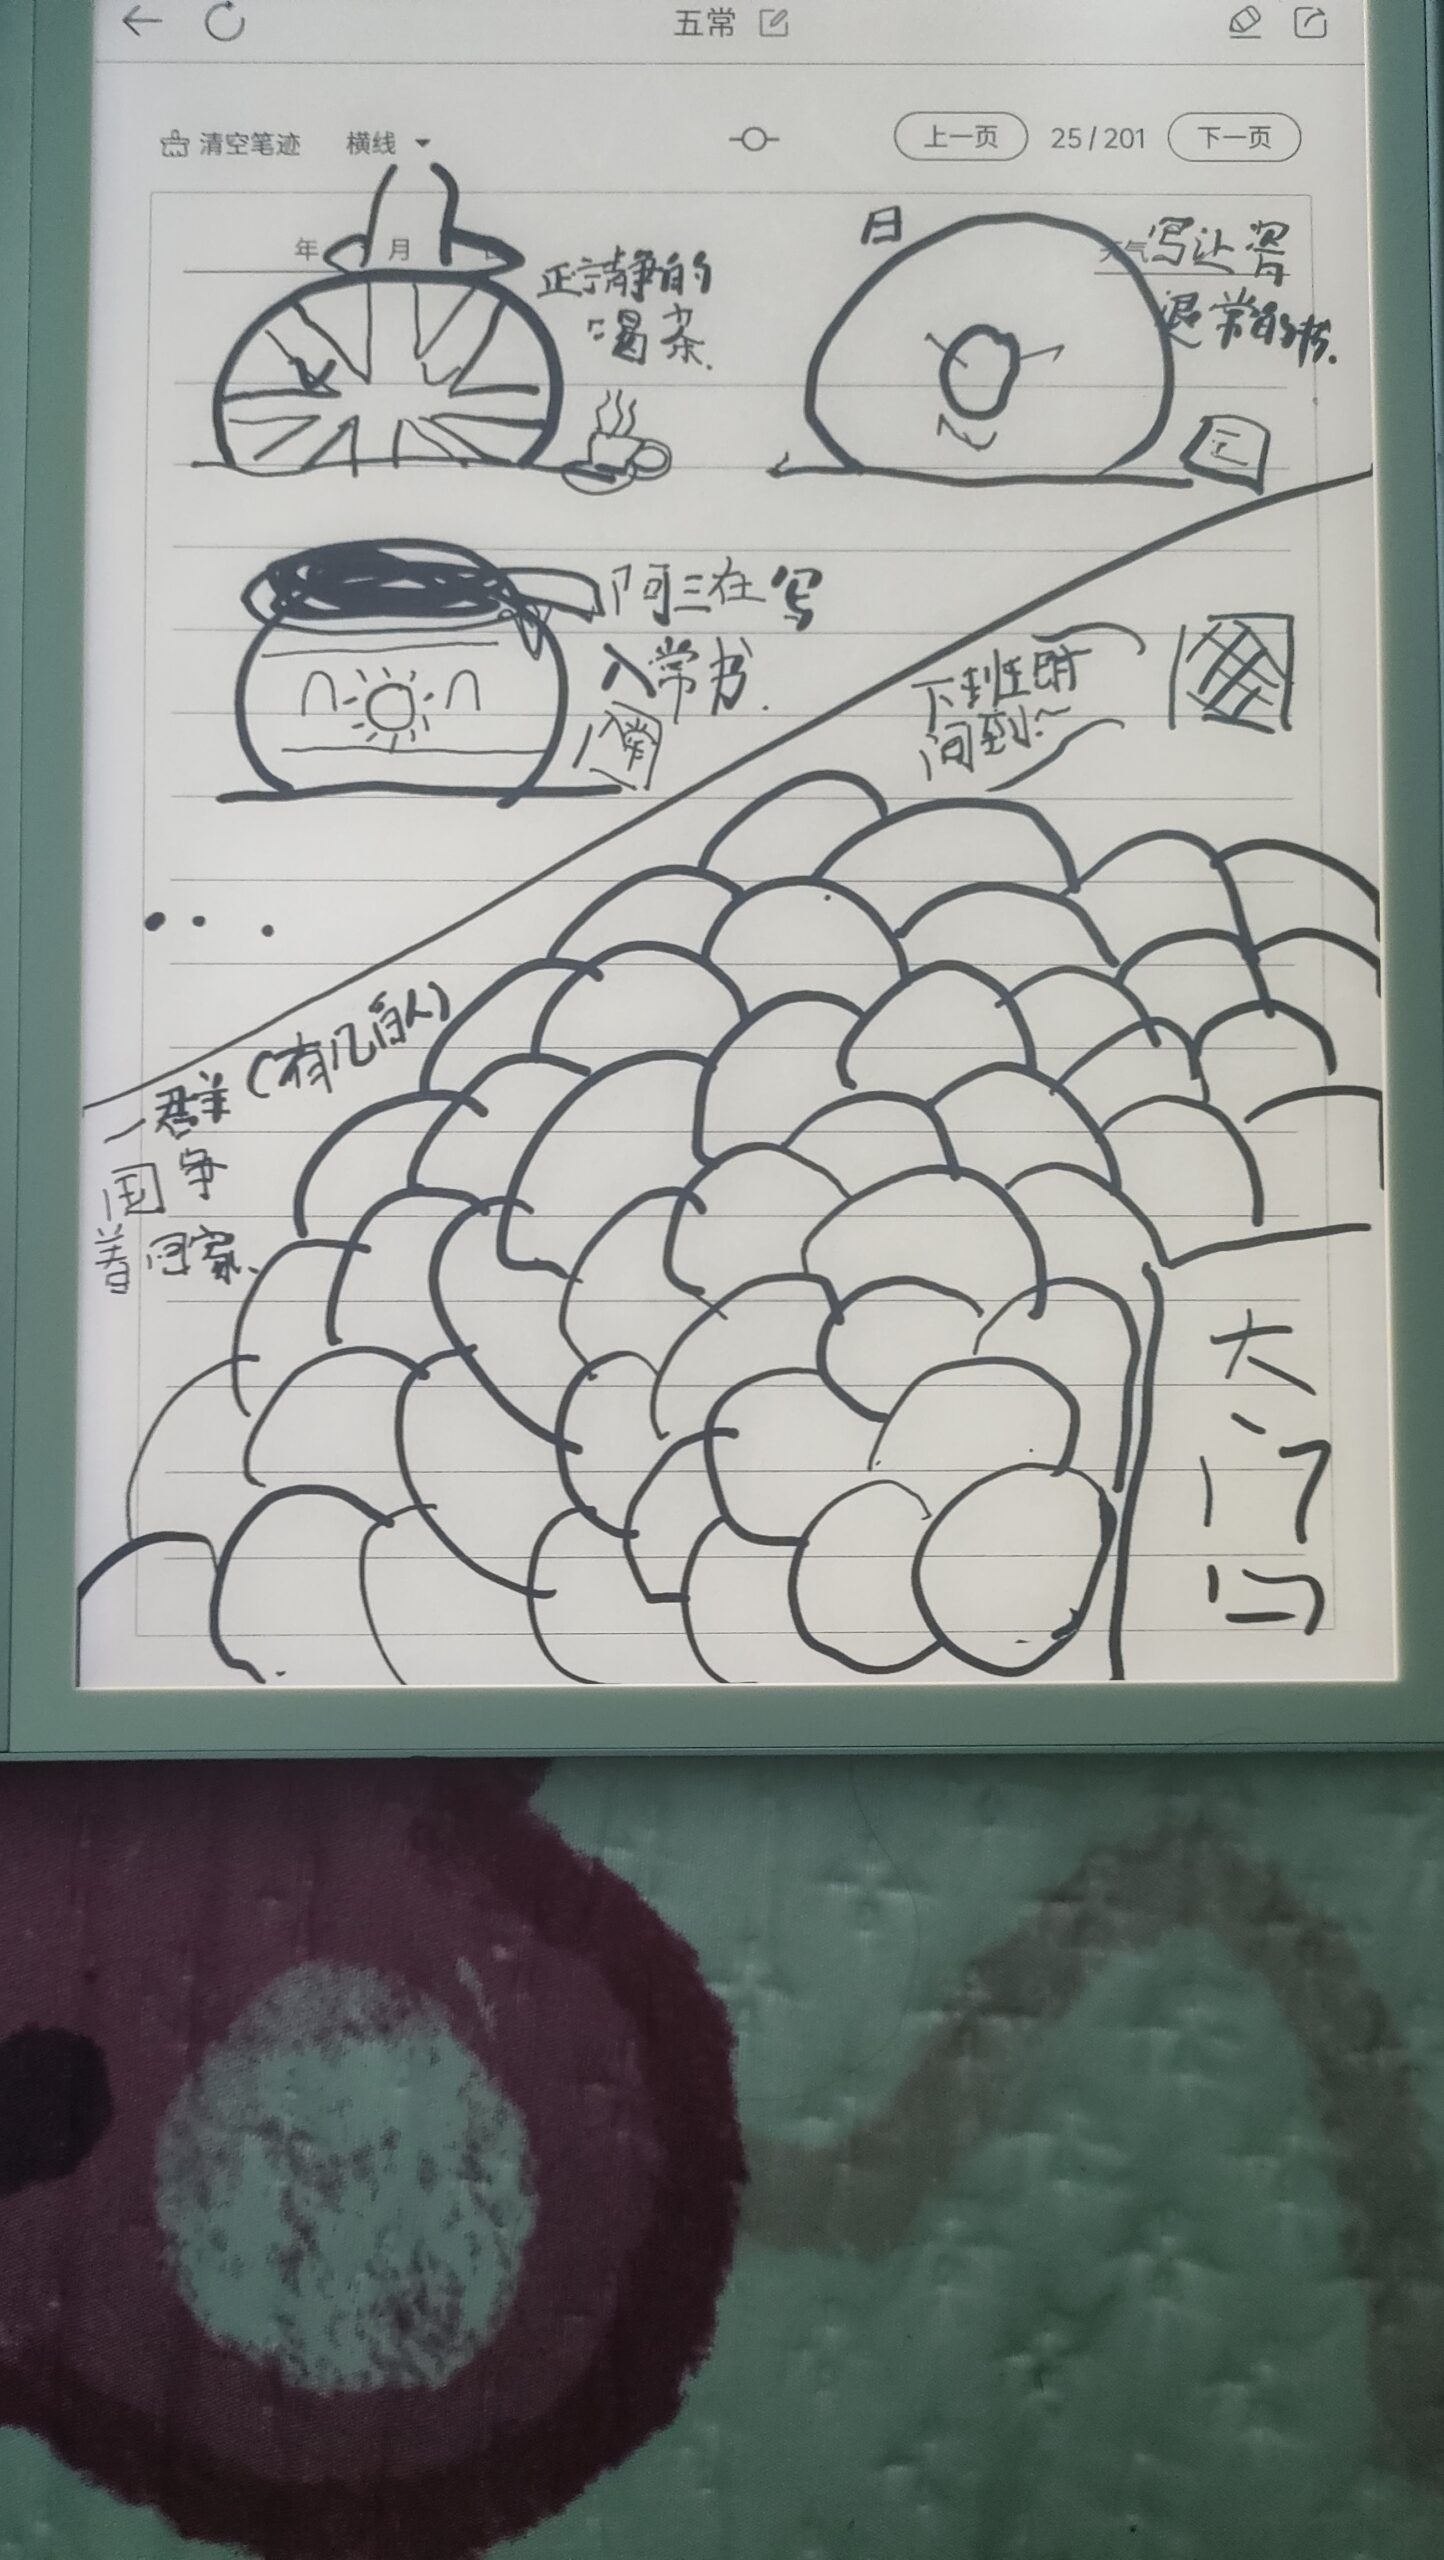 五常
清空笔迹 横线
上一页 25 / 201 下一页
年 月
日
正宁静的
喝茶.
写让
退常的书.
正
阿三在写
入常书.
入常
下班时
间到~
一群(有几百人)
国争
着回家、
大
门
口